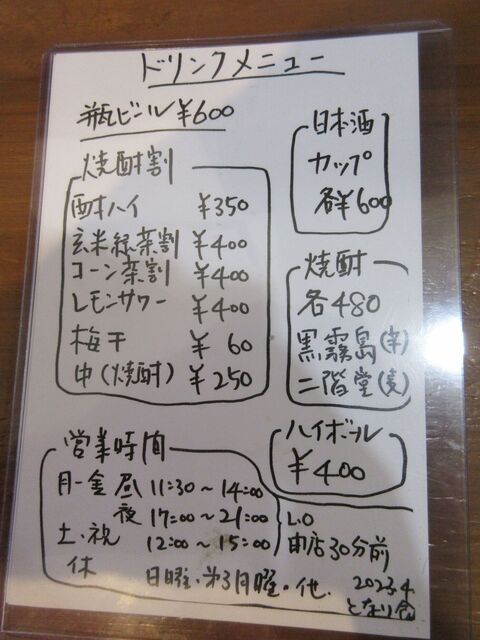 ドリンクメニュー
瓶ビール ¥600
焼酎割
酎ハイ ¥350
玄米緑茶割 ¥400
コーン茶割 ¥400
レモンサワー ¥400
梅干 ¥60
中(焼酎) ¥250
日本酒
カップ
各¥600
焼酎
各480
黒霧島(芋)
二階堂(麦)
ハイボール
¥400
営業時間
月-金 昼 11:30~14:00
夜 17:00~21:00
土・祝 12:00~15:00
休 日曜・第3月曜・他.
L.O
閉店30分前
2023.4
となり食